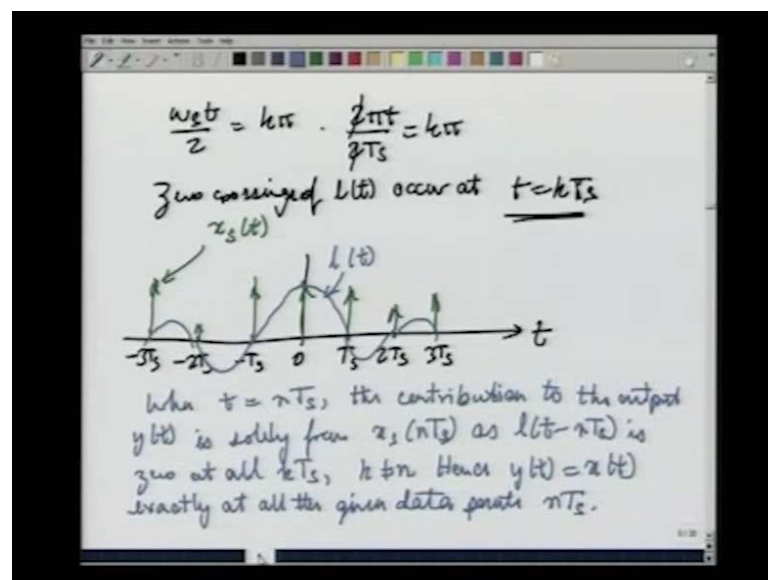 ωst/2 = kπ . 2πt/2Ts = kπ
Zero crossing of l(t) occur at t=kTs
xs(t)
l(t)
-3Ts -2Ts -Ts 0 Ts 2Ts 3Ts t
When t = nTs, the contribution to the output
y(t) is solely from xs(nTs) as l(t-nTs) is
zero at all kTs, k≠n Hence y(t) = x(t)
exactly at all the given data points nTs.